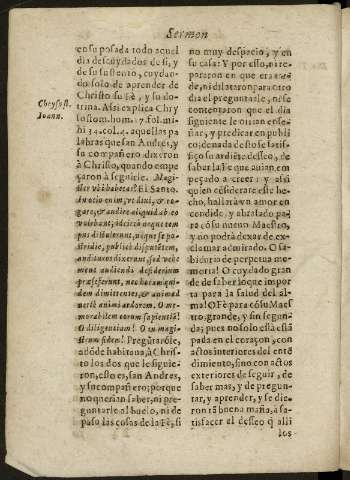 Sermon
en su posada todo aquel
dia descuydados de si, y
de su sustento, cuydan-
do solo de aprender de
Christo su Fè, y su do-
trina. Assi explica Chry
sostom. hom. 17. fol. mi-
hi 34. col. 4. aquellas pa
labras que san Andrès, y
su compañero dixeron
à Christo, quando empe
çaron à seguirle. Magi-
ster vbi habitas? El Santo.
gare, & audire aliquid ab eo
pus distulerunt, neque se po-
stridie, publicè disputãtem,
audituros dixerunt, sed vehe
ment audiendi desiderium
præseferunt, nec horam qui-
dem dimittentes, & animad
morabilem eorum sapientiã!
O diligentiam! O in magi-
strum fidem! Pregũtarõle,
adõde habitaua, à Chris-
to los dos que le siguie-
ron, esto es, san Andres,
y su compañero; porque
no querian saber, ni pre-
guntarle al buelo, ni de
paso las cosas de la Fè, si
Chrysost.
Ioann.
no muy despacio, y en
su casa: Y por esso, ni re
pararon en que era tar-
de, ni dilataron para otro
dia el preguntarle, ni se
contentaron que el dia
siguiente le oirian ense-
ñar, y predicar en publi
co; de nada desto se satis-
fizo su ardiẽte desseo, de
saber la Fè que auian em
peçado a creer: y assi
quien cõsiderare este he-
cho, hallarà vn amor en
cendido, y abrasado pa-
ra cõ su nueuo Maestro,
y no podrà dexar de ex-
clamar admirado. O sa-
biduria de perpetua me-
moria! O cuydado gran
de de saber lo que impor
ta para la salud del al-
ma! O Fè para cõ su Maes
tro, grande, y sin segun-
da; pues no solo està ella
pada en el coraçon, con
actos interiores del ente
dimiento, sino con actos
exteriores de seguir, de
saber mas, y de pregun-
tar, y aprender, y se die
ron tã buena maña, à sa-
tisfacer el desseo q̃ alli
los